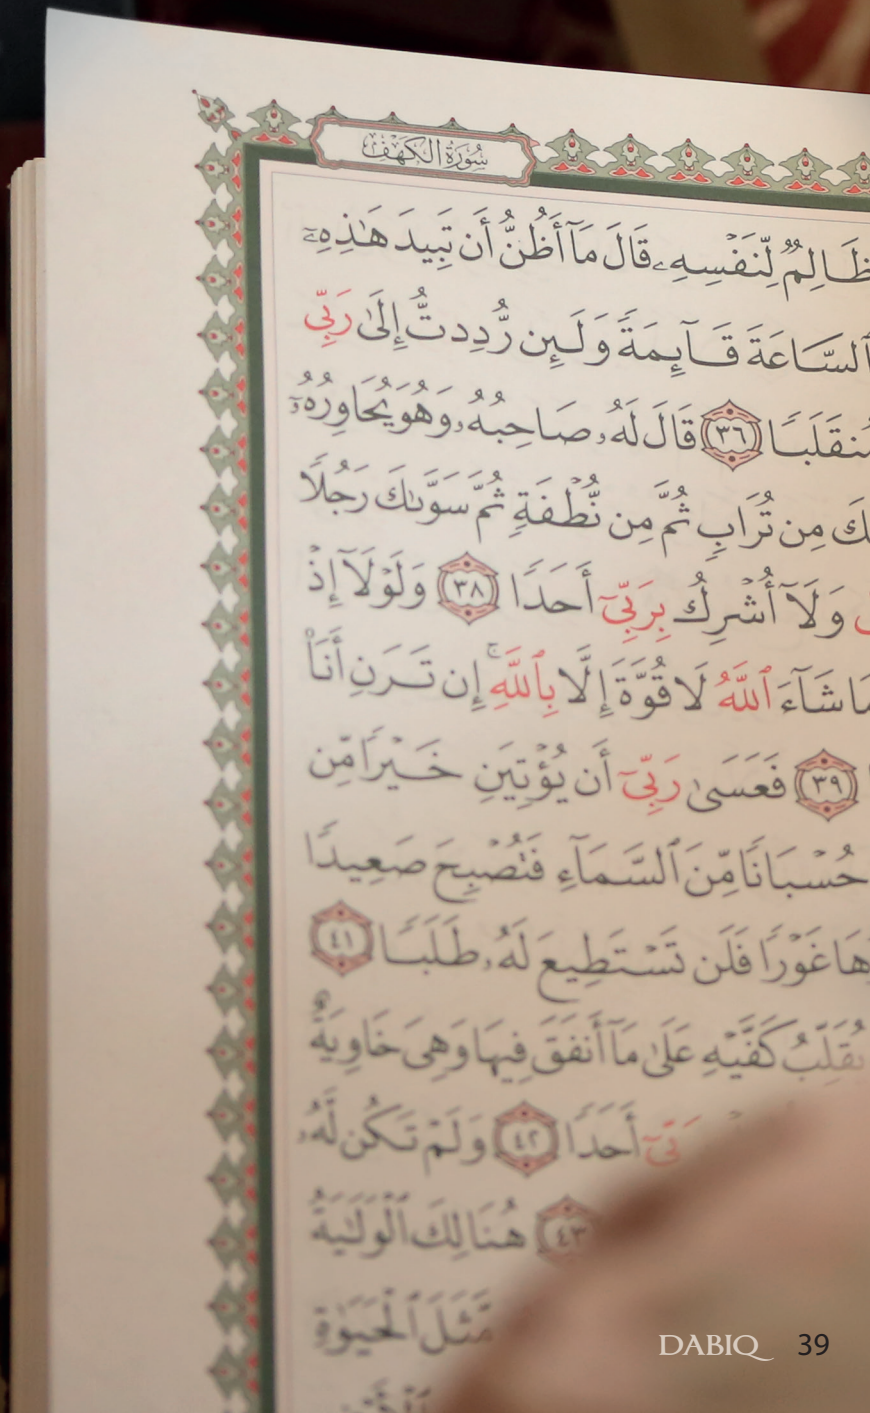 سُورَةُ الكَهْفِ
ظَالِمٌ لِّنَفْسِهِۦ قَالَ مَآ أَظُنُّ أَن تَبِيدَ هَٰذِهِۦٓ
ٱلسَّاعَةَ قَآئِمَةً وَلَئِن رُّدِدتُّ إِلَىٰ رَبِّي
مُنقَلَبًا ٣٦ قَالَ لَهُۥ صَاحِبُهُۥ وَهُوَ يُحَاوِرُهُۥٓ
مِن تُرَابٍ ثُمَّ مِن نُّطْفَةٍ ثُمَّ سَوَّىٰكَ رَجُلًا
وَلَآ أُشْرِكُ بِرَبِّيٓ أَحَدًا ٣٨ وَلَوْلَآ إِذْ
مَا شَآءَ ٱللَّهُ لَا قُوَّةَ إِلَّا بِٱللَّهِۚ إِن تَرَنِ أَنَا۠
٣٩ فَعَسَىٰ رَبِّيٓ أَن يُؤْتِيَنِ خَيْرًا مِّن
حُسْبَانًا مِّنَ ٱلسَّمَآءِ فَتُصْبِحَ صَعِيدًا
غَوْرًا فَلَن تَسْتَطِيعَ لَهُۥ طَلَبًا ٤١
يُقَلِّبُ كَفَّيْهِ عَلَىٰ مَآ أَنفَقَ فِيهَا وَهِىَ خَاوِيَةٌ
أَحَدًا ٤٢ وَلَمْ تَكُن لَّهُۥ
٤٣ هُنَالِكَ ٱلْوَلَٰيَةُ
مَّثَلَ ٱلْحَيَوٰةِ
DABIQ 39